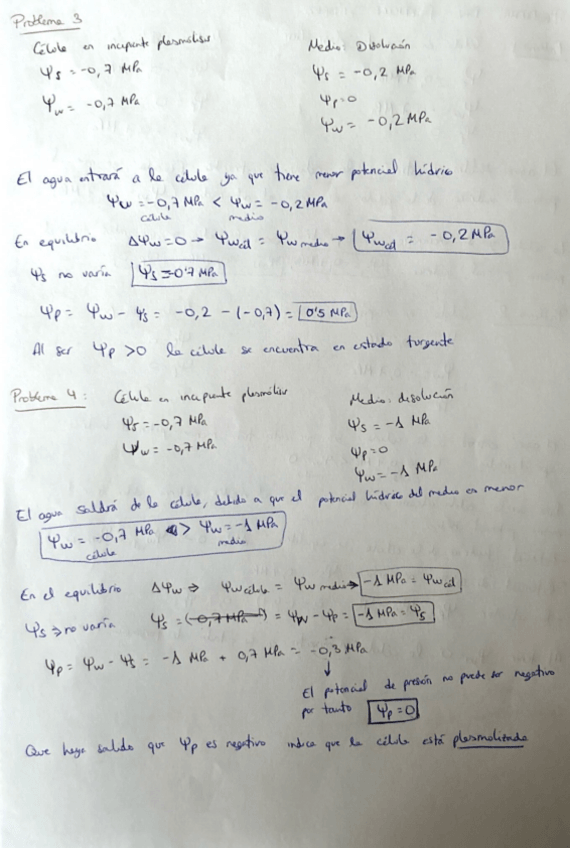 Problema 3
Célula en incipiente plasmólisis
Medio: Disolución
Ψs = -0,7 MPa
Ψs = -0,2 MPa
Ψp=0
Ψw = -0,7 MPa
Ψw = -0,2 MPa
El agua entrará a la célula ya que tiene menor potencial hídrico
Ψw = -0,7 MPa < Ψw = -0,2 MPa
célula medio
En equilibrio ΔΨw=0 → Ψw cél = Ψw medio → Ψw cél = -0,2 MPa
Ψs no varía Ψs = 0'7 MPa
Ψp = Ψw - Ψs = -0,2 - (-0,7) = 0'5 MPa
Al ser Ψp >0 la célula se encuentra en estado turgente
Problema 4: Célula en incipiente plasmólisis
Medio: disolución
Ψs = -0,7 MPa
Ψs = -1 MPa
Ψw = -0,7 MPa
Ψp=0
Ψw = -1 MPa
El agua saldrá de la célula, debido a que el potencial hídrico del medio es menor
Ψw = -0,7 MPa > Ψw = -1 MPa
célula medio
En el equilibrio ΔΨw ⇒ Ψw célula = Ψw medio → -1 MPa = Ψw cél
Ψs ⇒ no varía Ψs = (-0,7 MPa) = Ψw - Ψp = -1 MPa = Ψs
Ψp = Ψw - Ψs = -1 MPa + 0,7 MPa = -0,3 MPa
↓
El potencial de presión no puede ser negativo
por tanto Ψp = 0
Que haya salido que Ψp es negativo indica que la célula está plasmolizada